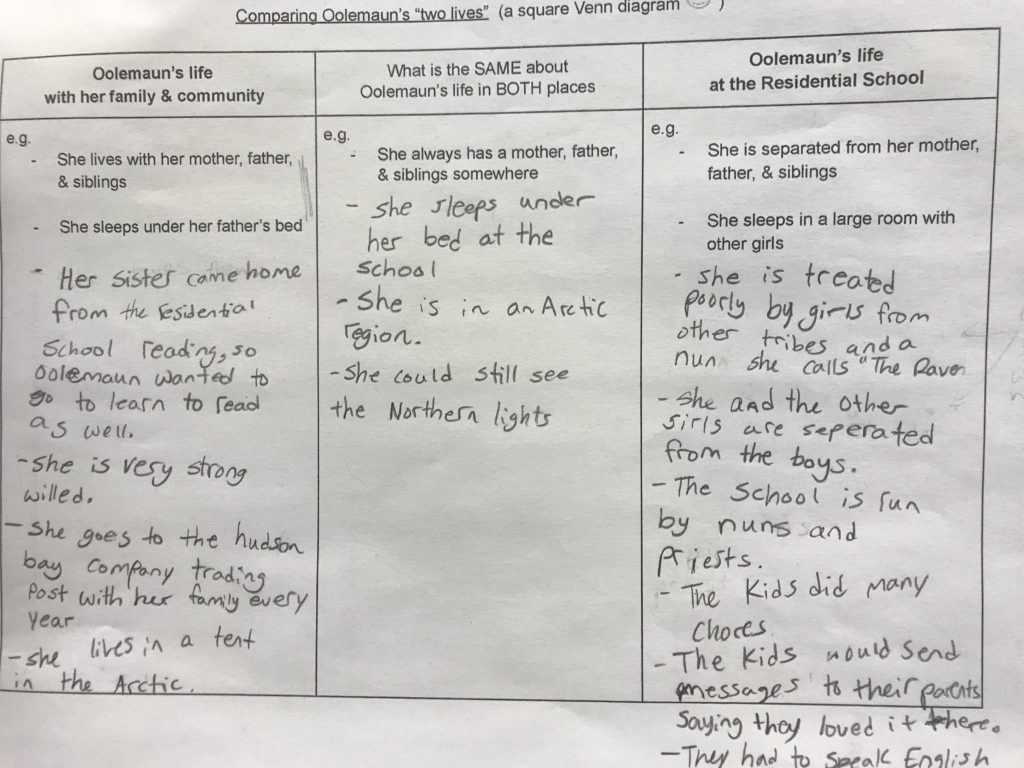 Comparing Oolemaun's "two lives" (a square Venn diagram )
Oolemaun's life
with her family & community
e.g.
- She lives with her mother, father,
& siblings
- She sleeps under her father's bed
- Her sister came home
from the residential
School reading, so
Oolemaun wanted to
go to learn to read
as well.
- she is very strong
willed.
- she goes to the hudson
bay company trading
Post with her family every
year
- she lives in a tent
in the Arctic.
What is the SAME about
Oolemaun's life in BOTH places
e.g.
- She always has a mother, father,
& siblings somewhere
- she sleeps under
her bed at the
school
- She is in an Arctic
region.
- She could still see
the Northern lights
Oolemaun's life
at the Residential School
e.g.
- She is separated from her mother,
father, & siblings
- She sleeps in a large room with
other girls
- she is treated
poorly by girls from
other tribes and a
nun she calls "The Raven
- she and the other
girls are seperated
from the boys.
- The School is run
by nuns and
priests.
- The Kids did many
chores.
- The Kids would send
messages to their parents
saying they loved it there.
- They had to speak English